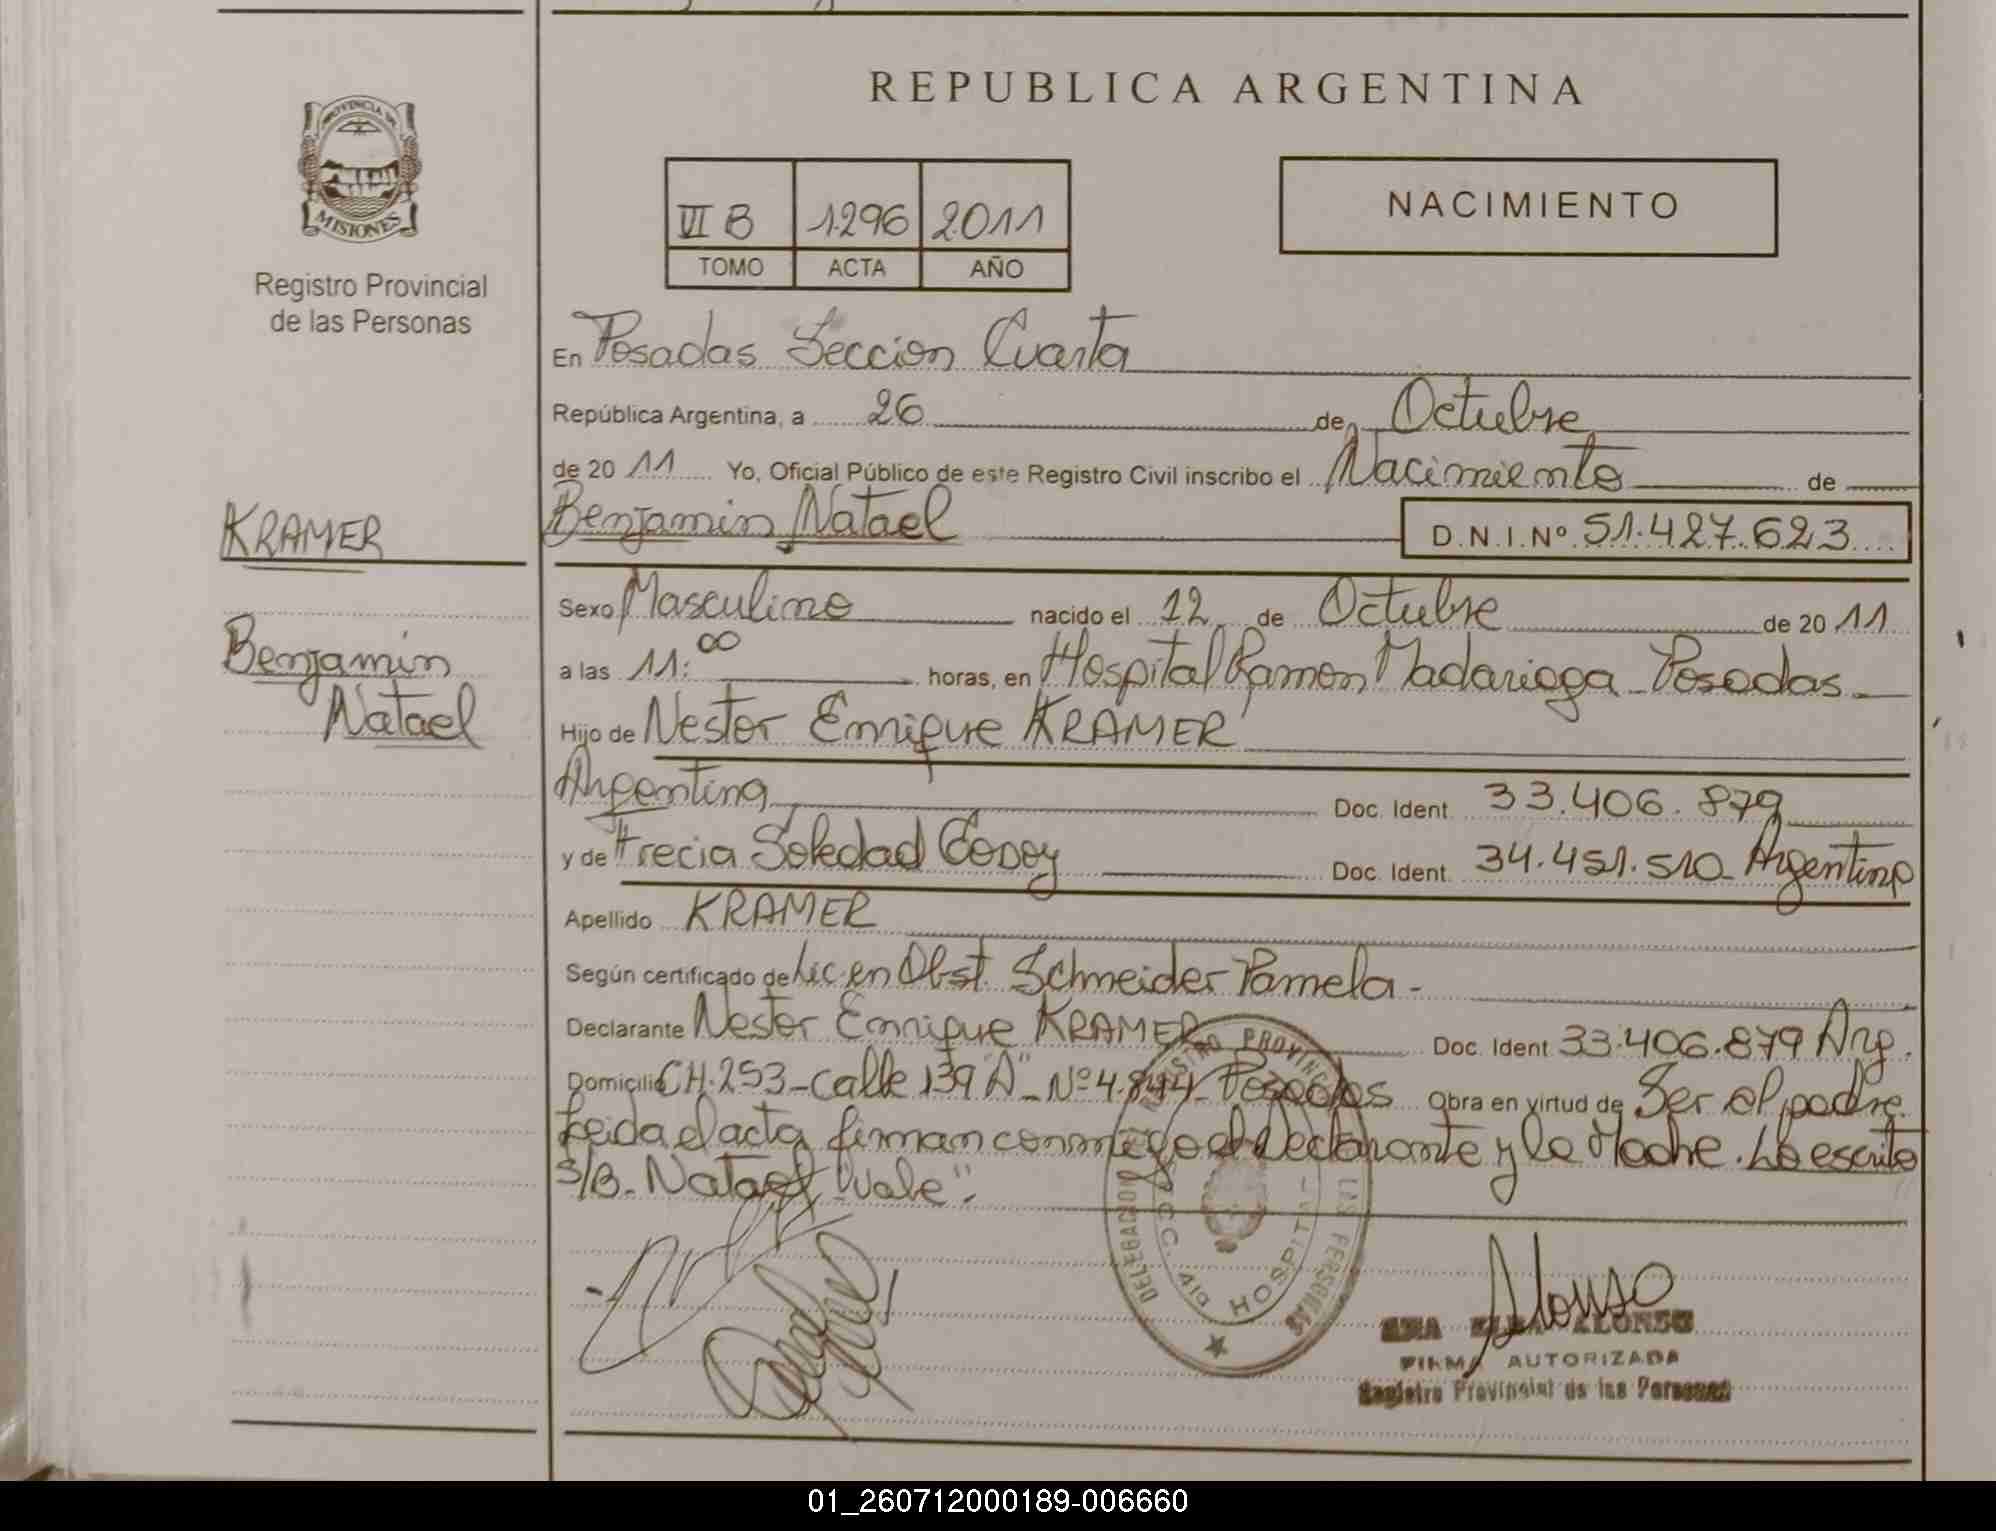 REPUBLICA ARGENTINA
PROVINCIA DE
MISIONES
Registro Provincial
de las Personas
VI B 1296 2011
TOMO ACTA AÑO
NACIMIENTO
En Posadas Seccion Cuarta
República Argentina, a 26 de Octubre
de 20 11 Yo, Oficial Público de este Registro Civil inscribo el Nacimiento de
Benjamin Natael D.N.I.Nº 51.427.623
KRAMER
Benjamin
Natael
Sexo Masculino nacido el 12 de Octubre de 20 11
a las 11:00 horas, en Hospital Ramon Madariaga - Posadas -
Hijo de Nestor Enrique KRAMER
Argentina Doc. Ident. 33.406.879
y de Frecia Soledad Godoy Doc. Ident. 34.451.510 - Argentina
Apellido KRAMER
Según certificado de Lic. en Obst. Schneider Pamela -
Declarante Nestor Enrique KRAMER Doc. Ident. 33.406.879 Arg.
Domicilio CH. 253 - calle 139 "A" - Nº 4.844 - Posadas Obra en virtud de Ser el padre.
Leida el acta firman conmigo el Declarante y la Madre. Lo escrito
S/B. Natael "Vale".
REGISTRO PROVINCIAL DE LAS PERSONAS
DELEGACION
HOSPITAL
Alonso
ALONSO
FIRMA AUTORIZADA
Registro Provincial de las Personas
01_260712000189-006660